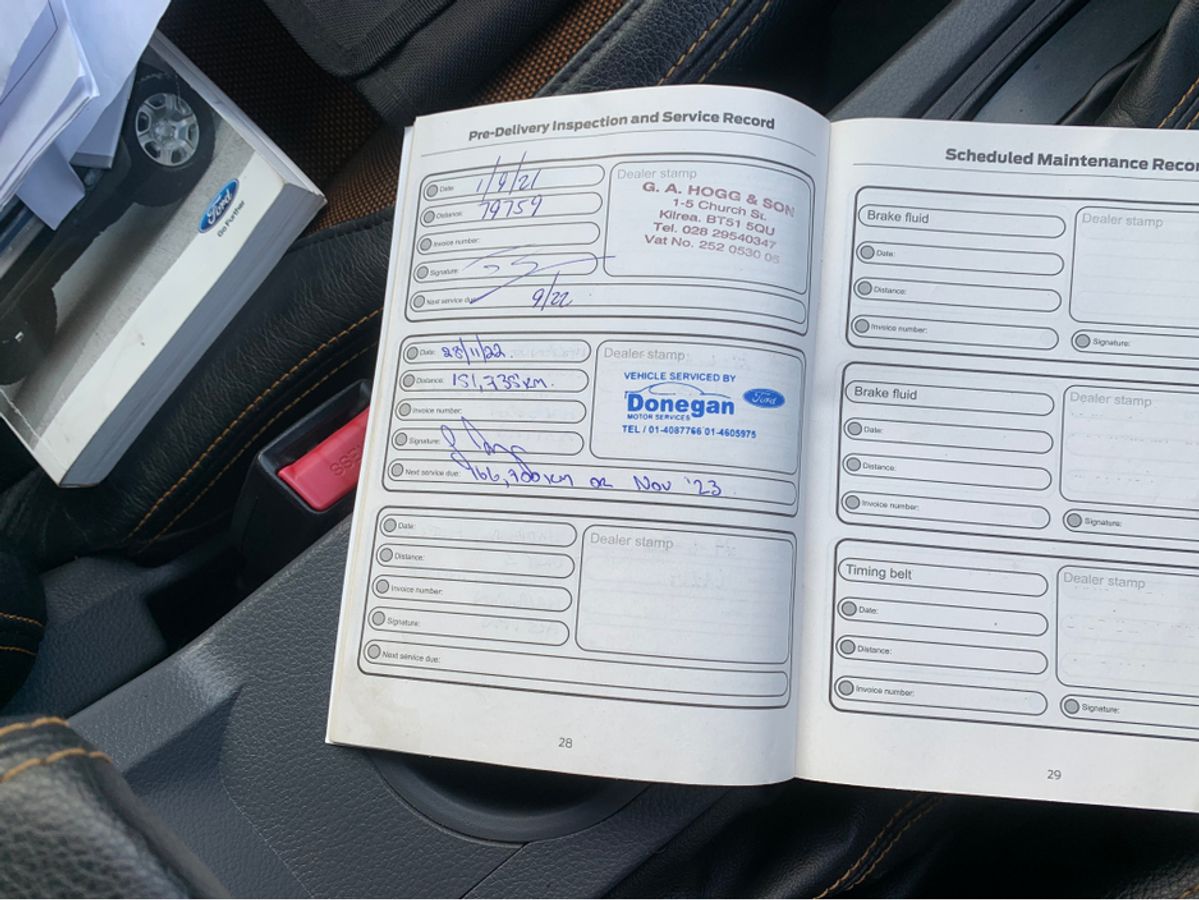 Ford
Go Further
PRESS
Pre-Delivery Inspection and Service Record
Date: 1/9/21
Distance: 79759
Invoice number:
Signature:
Next service due: 9/22
Dealer stamp
G. A. HOGG & SON
1-5 Church St.
Kilrea. BT51 5QU
Tel. 028 29540347
Vat No. 252 0530 05
Date: 28/11/22.
Distance: 151,735km.
Invoice number:
Signature:
Next service due: 166,700km or Nov '23.
Dealer stamp
VEHICLE SERVICED BY
Donegan
Ford
MOTOR SERVICES
TEL / 01-4087766 01-4605975
Date:
Distance:
Invoice number:
Signature:
Next service due:
Dealer stamp
28
Scheduled Maintenance Recor
Brake fluid
Date:
Distance:
Invoice number:
Dealer stamp
Signature:
Brake fluid
Date:
Distance:
Invoice number:
Dealer stamp
Signature:
Timing belt
Date:
Distance:
Invoice number:
Dealer stamp
Signature:
29